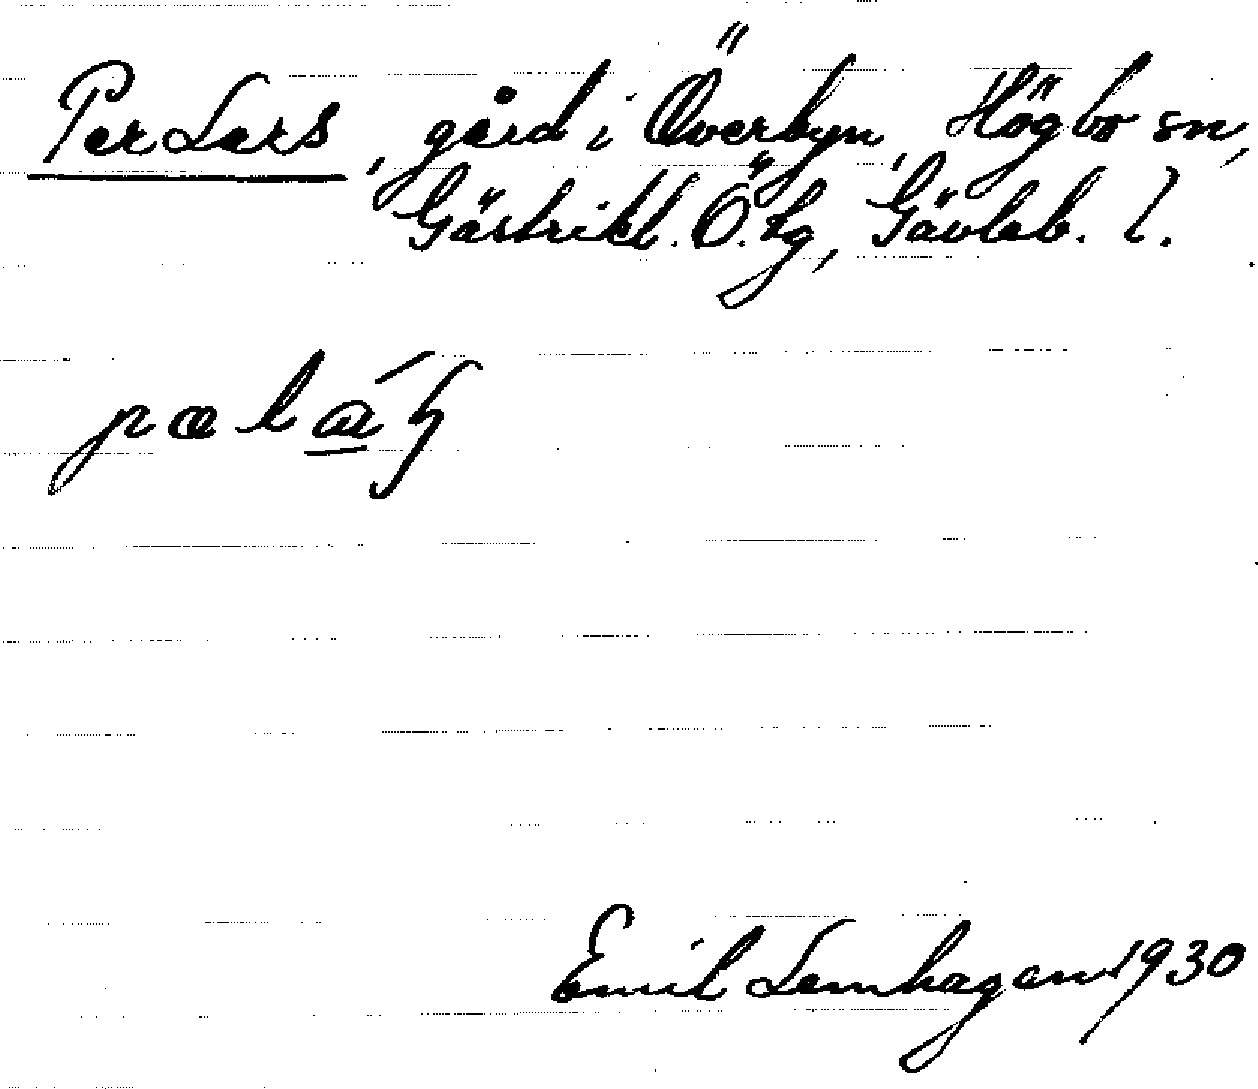 Per Lars, gård i Överbyn, Högbo sn,
Gästrikl. Ö. tg, Gävleb. l.
Emil Lemhagen 1930